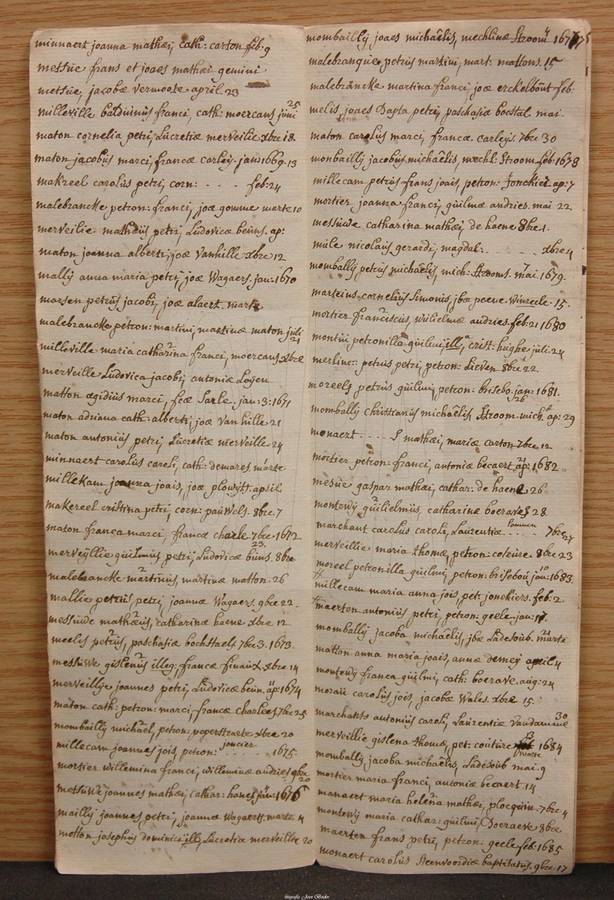 minnaert joanna mathei, cath: carton feb: 9
messue frans et joaes mathaei gemini
messue, jacobae vermoere april 23
milleville balduinus franci, cath: moercans juni 25
maton cornelia petri, Lucretiae merveilie xbre 18
maton jacobus marci, francae carley. jan: 1669. 13
makreel carolus petri, corn: . . . feb: 24
malebrancke petron: franci, joae gomme marte 10
merveilie mathius petri, Ludovicae beuns. ap:
maton joanna alberti, joae Vanhille xbre 12
mally anna maria petri, joae Wagaers. jan: 1670
marsen petrus jacobi, joae alaert marte
malebrancke petron: martini, martinae maton juli 21
milleville maria catharina franci, moercans xbre
merveille Ludovica jacobi antoniae Loyen
matton agidius marci, Sarle. jan: 13: 1671
maton adriana cath: alberti, joae Van hille 21
maton antonius petri Lucretiae merveille 24
minnaert carolus caroli, cath: demares marte
millekam joanna joais, joae april
makereel cristina petri, corn: pauwels. 8bre 7
maton franca marci, francae charle 7bre 1672
merveyllie guilmus petri, Ludovicae buns. 8bre 23
malebrancke martinus, martinae matton. 26
mallie petrus, petri, joannae Wagaers. 9bre 22
messuwe mathaeus, catharinae haene xbre 12
meelis petrus, paschasiae bochstaels 7bre 3. 1673
messuwe gislenus illeg; francae xbre 14
merveillye joannes petri, Ludovicae beun. ap: 1674
maton cath: petron: marci, francae charlies 7bre 25
mombailly michael, petron: xbre 20
millecam joannes jois, petron: joncier 1675
mortier willemina franci, willeminae andries 9bre 20
messuwe joannes mathaei, cathar: hones jan: 1676
mailly joannes petri, joannae Wagaerts. marte 4
motton josephus dominici, Lucretiae merveillie 20
mombailly joaes michaelis, mechlinae Stroom 1677
malebranque petrus martini, mart: mattons. 15
malebrancke martina franci, joae erckelbout feb:
melis joaes Bapta petri, paschasia boestal mai
maton carolus marci, francae. carleys. 7bre 30
monbailly jacobus michaelis, mechl Stroom. feb: 1678
millecam petrus frans joais, petron: Jonckier ap: 7
mortier joanna franci, guilmae andries. mai 22
messuwe catharina mathaei de haene 8bre 1.
mule nicolaus gerardi, magdal: . . . xbre 4
mombally petrus michaelis, mich: Stroms. mai 1679.
marteins, cornelius Simonis, jbae poeue 15.
mortier franciscus, wilielmae andries. feb: 21 1680
montini petronilla guilmi, crist: hughe juli: 24
merlinc: petrus petri, petron: Lieven xbre 22.
moreels petrus guilmi, petron: brisebo. jan: 1681. 26
mombally christianus michaelis, Stroom. mich: ap: 29
monaert . . . . . mathaei, mariae carton 7bre 12
mortier petron: franci, antoniae becaert ap: 1682
mesue gaspar mathaei, cathar: de haene 26
montewy guilielmus, catharinae boeraves 28
marchant carolus caroli, Laurentiae . . . 7bre 27
merveillie: maria thomae, petron: coleire. 8bre 23
moreel petronilla guilmi, petron: brisebou jan: 1683.
millecam maria anna jois, pet: jonckiers. feb: 2
maerten antonius petri, petron: geele. jan: 17
mombally jacoba michaelis, jbae Ladesoub. marte
matton anna maria joais, annae demey april 4
montewy franca guilmi, cath: boerave. aug: 24
moraii carolus jois, jacobae Wales. xbre 15
marchants antonius caroli, Laurentiae Vandamme 30
merveillie gislena thomae, pet: couture 1684
mombally jacoba michaelis, Ladesoub mai. 9
mortier maria franci, antoniae becaert 14
manaert maria helena mathaei, plocquin. 7bre 4
montewy maria cathar: guilmi, Boeraeve 8bre
maerten frans petri, petron: geele feb: 1685
monaert carolus Steenvoordiae baptisatus, 9bre. 17